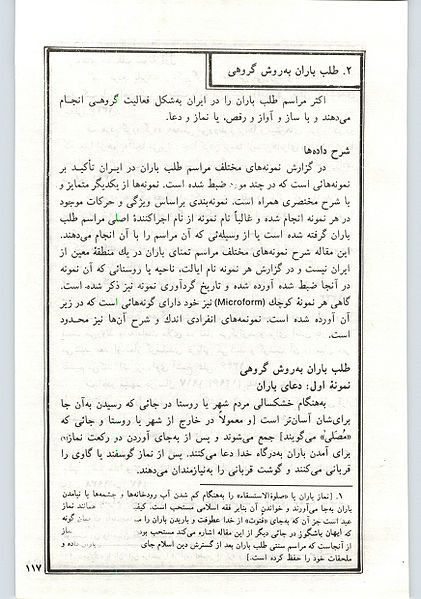 ۲. طلب باران به‌روش گروهی
اکثر مراسم طلب باران را در ایران به‌شکل فعالیت گروهی انجام
می‌دهند و با ساز و آواز و رقص، یا نماز و دعا.
شرح داده‌ها
در گزارش نمونه‌های مختلف مراسم طلب باران در ایران تأکید بر
نمونه‌هائی است که در چند مو ضبط شده است. نمونه‌ها از یکدیگر متمایز و
با شرح مختصری همراه است. نمونه‌بندی براساس ویژگی و حرکات موجود
در هر نمونه انجام شده و غالباً نام نمونه از نام اجراکنندهٔ اصلی مراسم طلب
باران گرفته شده است یا از وسیله‌ئی که آن مراسم را با آن انجام می‌دهند.
این مقاله شرح نمونه‌های مختلف مراسم تمنای باران در یك منطقهٔ معین از
ایران نیست و در گزارش هر نمونه نام ایالت، ناحیه یا روستائی که آن نمونه
در آنجا ضبط شده آورده شده و تاریخ گردآوری نمونه نیز ذکر شده است.
گاهی هر نمونهٔ کوچك (Microform) نیز خود دارای گونه‌هائی است که در زیر
آن آورده شده است. نمونمه‌های انفرادی اندك و شرح آن‌ها نیز محدود
است.
طلب باران به‌روش گروهی
نمونهٔ اول: دعای باران
به‌هنگام خشکسالی مردم شهر یا روستا در جائی که رسیدن به‌آن جا
برای‌شان آسان‌تر است [و معمولاً در خارج از شهر یا روستا و جائی که
«مُصَلی» می‌گویند] جمع می‌شوند و پس از به‌جای آوردن دو رکعت نماز(۱)
برای آمدن باران به‌درگاه خدا دعا می‌کنند. پس از نماز گوسفند یا گاوی را
قربانی می‌کنند و گوشت قربانی را به‌نیازمندان می‌دهند.
۱. [نماز باران یا «صلوةالاستسقاء» را به‌هنگام کم شدن آب رودخانه‌ها و چشمه‌ها یا نیامدن
باران به‌جا می‌آورند و خواندن آن بنابر فقه اسلامی مستحب است. کیف همانند نماز
عید است جز آن که به‌جای «قنوت» از خدا عطوفت و باریدن باران را م گونه
که ایهان باشگوز در جائی دیگر از این مقاله اشاره می‌کند مستحب بود ساز
از آنجاست که مراسم سنتی طلب باران بعد از گسترش دین اسلام جای داده و
ملحقات خود را حفظ کرده است.]
۱۱۷